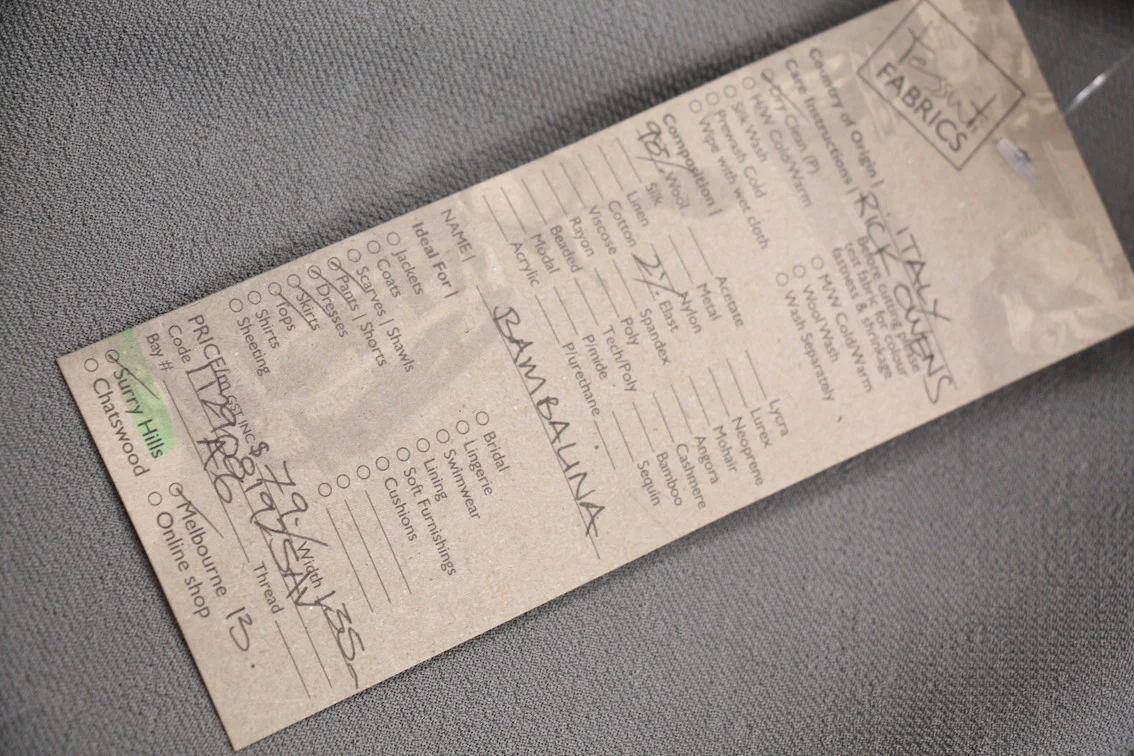 Tessuti
FABRICS
Country of Origin | ITALY
RICK OWENS
Care Instructions |
Before cutting please
test fabric for colour
fastness & shrinkage
Dry Clean (P)
H/W Cold/Warm
Silk Wash
Prewash Cold
Wipe with wet cloth
M/W Cold/Warm
Wool Wash
Wash Separately
Composition |
98% Wool
Silk
Linen
Cotton
Viscose
Rayon
Beaded
Modal
Acrylic
Acetate
Metal
Nylon
2% Elast
Spandex
Poly
Tech/Poly
P/mide
P/urethane
Lycra
Lurex
Neoprene
Mohair
Angora
Cashmere
Bamboo
Sequin
NAME | BAMBALINA
Ideal For |
Jackets
Coats
Scarves | Shawls
Pants | Shorts
Dresses
Skirts
Tops
Shirts
Sheeting
Bridal
Lingerie
Swimwear
Lining
Soft Furnishings
Cushions
PRICE/m GST INC $79 Width 135
Code |
Bay # Thread
Surry Hills
Chatswood
Melbourne 13.
Online shop